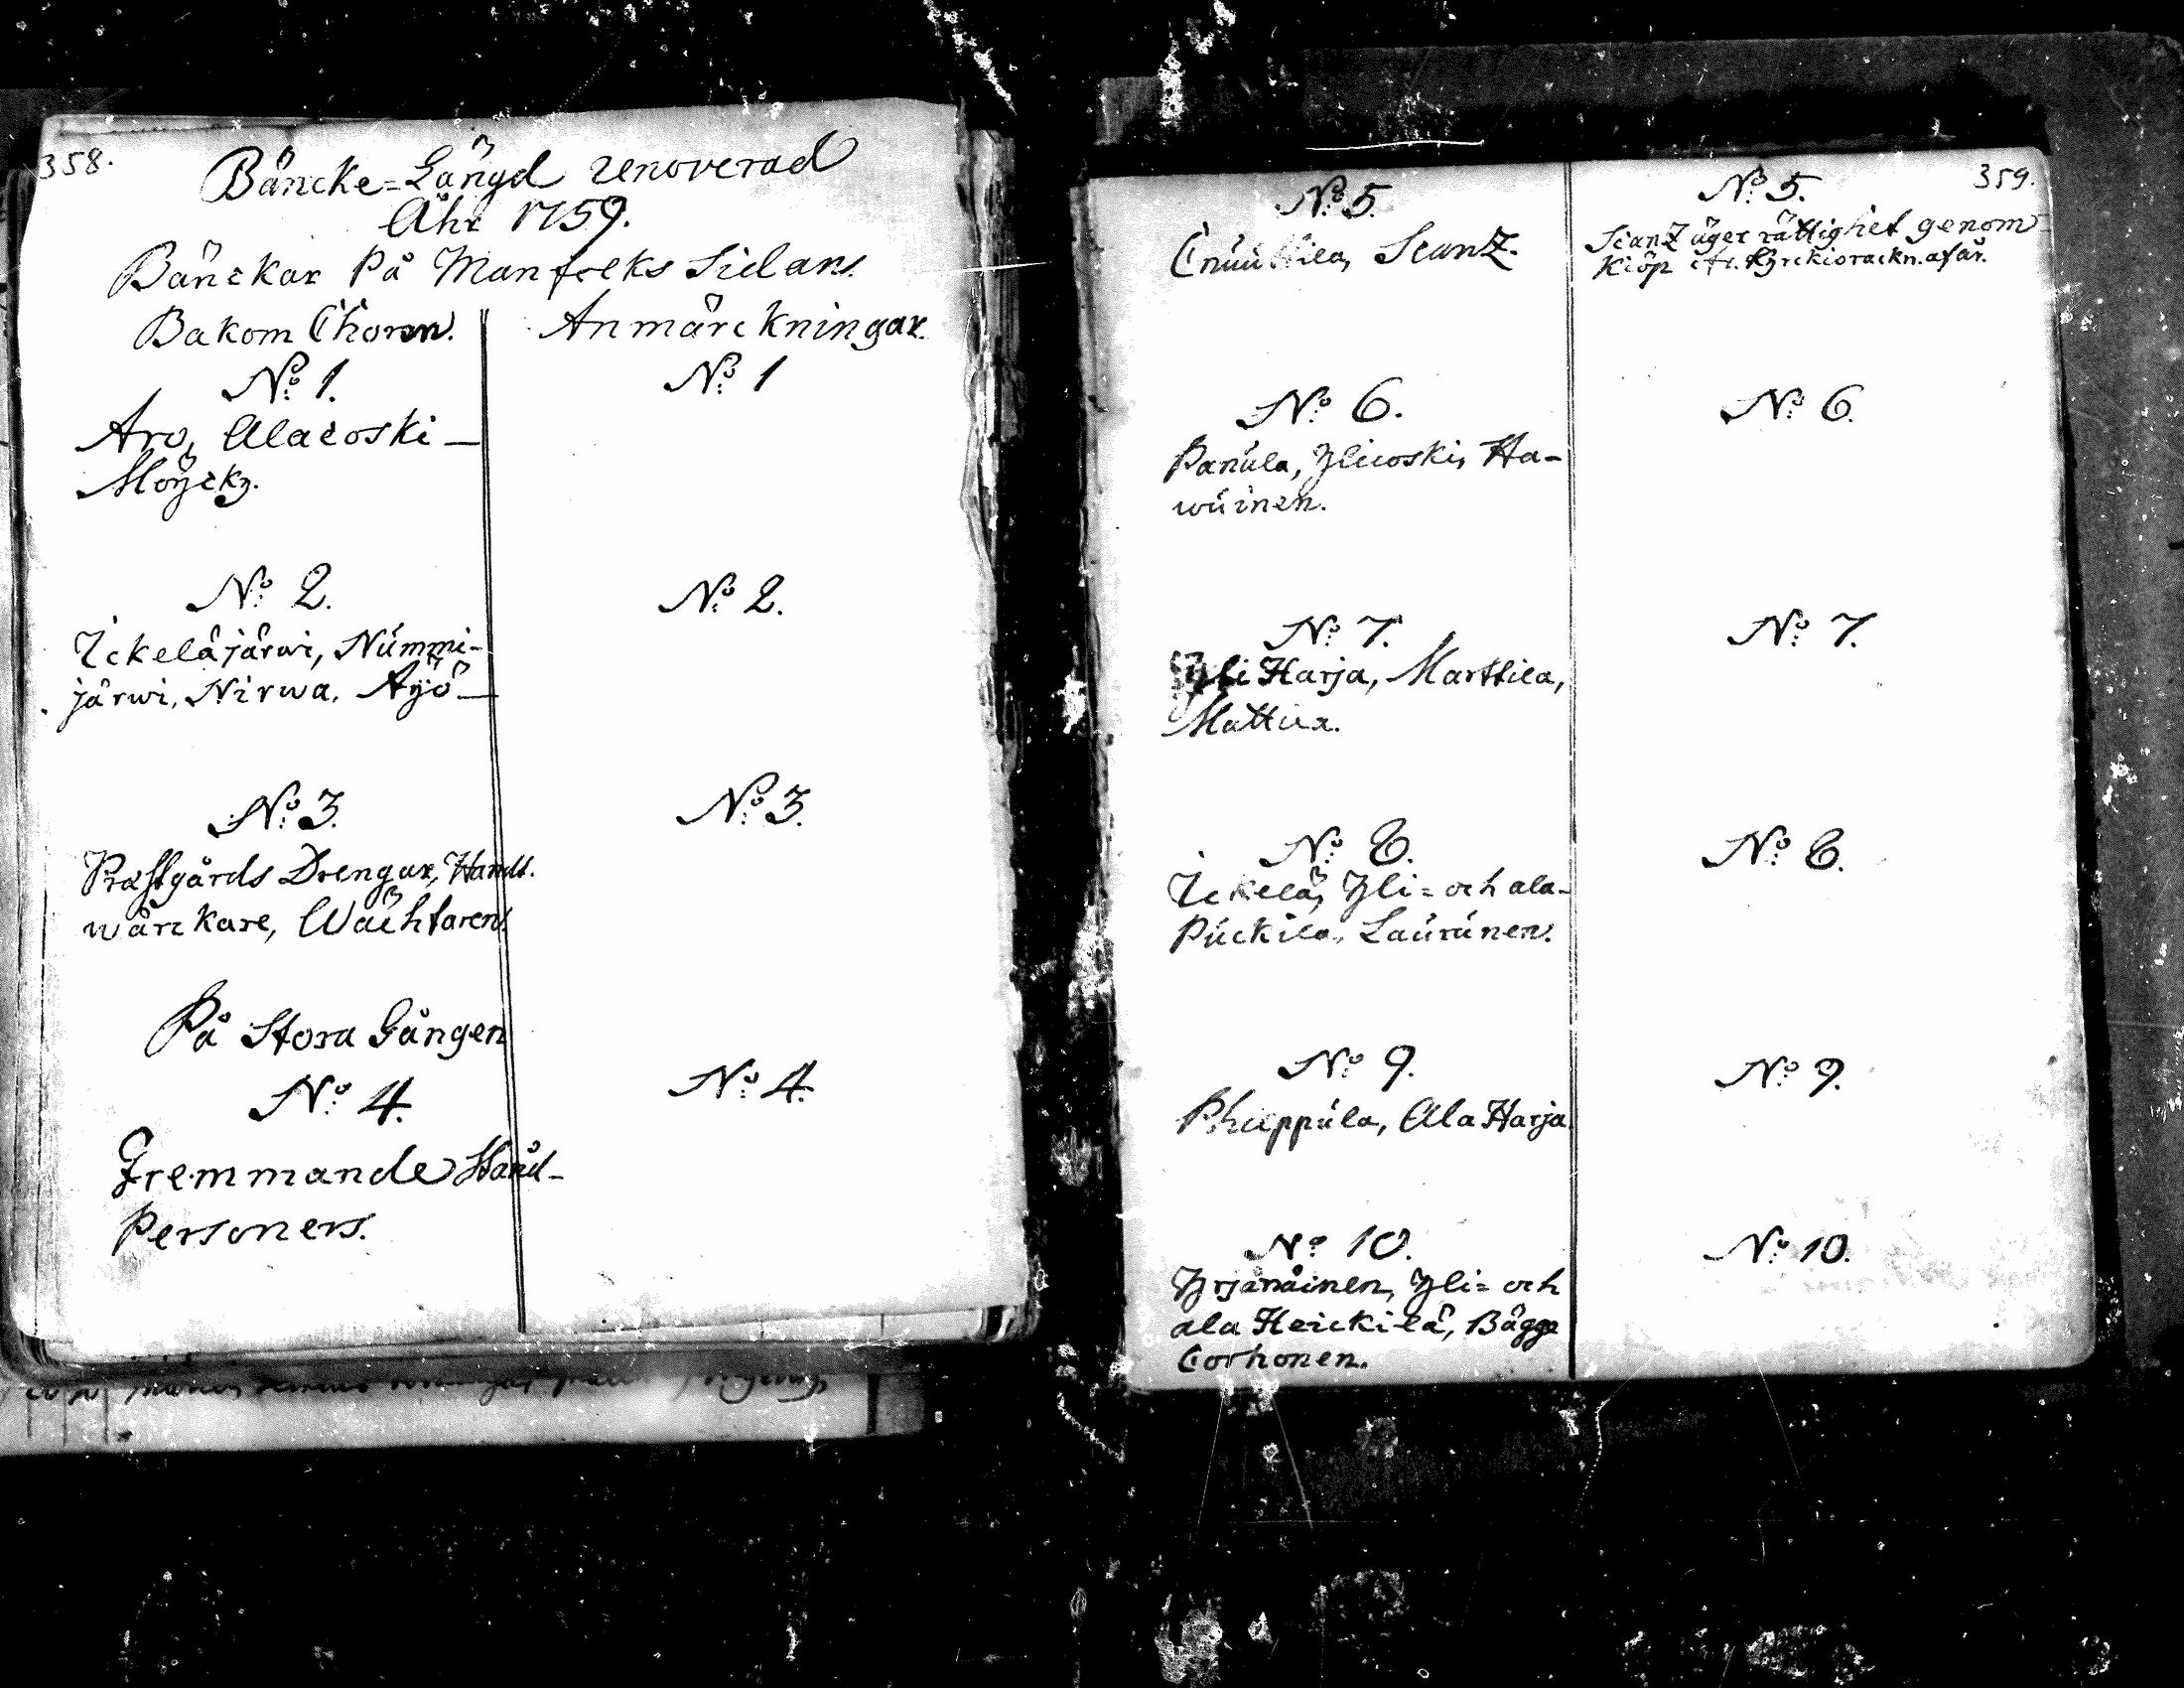 358.
Bäncke=Längd renoverad
Åhr 1759.
Bänckar På Manfolks Sidan.
Bakom Choren.
Anmärckningar.
No 1.
No 1
Aro, Alacoski
Möÿcky.
No 2.
No 2.
Ickeläjärwi, Nummi-
järwi, Nirwa, Äÿö
No 3.
No 3.
Præstgårds Drengar, Handt-
wärckare, Wächtaren.
På Stora Gången
No 4.
No 4.
Fremmande Stånd-
Personers.
359.
No 5.
No 5.
Cnuuttila, Scantz.
Scantz äger rättighet genom
Kiöp
No 6.
No 6.
Panula, Ylicoski, Ha-
wuinen.
No 7.
No 7.
Yli Harja, Marttila,
Mattila.
No 8.
No 8.
Ickelä, Yli= och ala-
Puckila, Laurunen.
No 9.
No 9.
Philppula, Ala Harja
No 10.
No 10.
Yrjänäinen, Yli= och
ala Heickilä, Bägge
Corhonen.